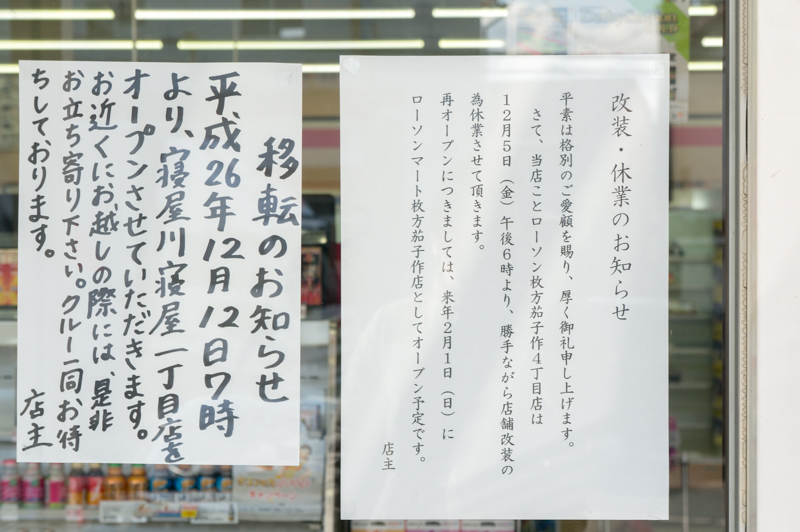 改装・休業のお知らせ
平素は格別のご愛顧を賜り、厚く御礼申し上げます。
さて、当店ことローソン枚方茄子作4丁目店は
12月5日（金）午後6時より、勝手ながら店舗改装の
為休業させて頂きます。
再オープンにつきましては、来年2月1日（日）に
ローソンマート枚方茄子作店としてオープン予定です。
店主
移転のお知らせ
平成26年12月12日7時
より、寝屋川寝屋一丁目店を
オープンさせていただきます。
お近くにお越しの際には、是非
お立ち寄り下さい。クルー一同お待
ちしております。
店主